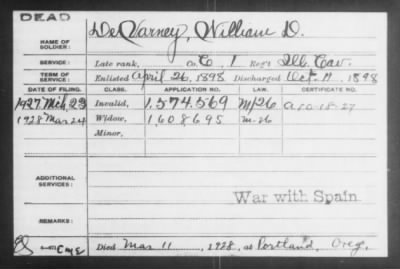 DEAD
NAME OF SOLDIER: DeVarney, William D.
SERVICE: Late rank, Co. 1 Reg't Ill. Cav.
TERM OF SERVICE: Enlisted April 26, 1898 Discharged Oct. 11, 1898
DATE OF FILING. CLASS. APPLICATION NO. LAW. CERTIFICATE NO.
1927 Mch 23 Invalid, 1,574,569 M/26
1928 Mar 24 Widow, 1608695 M-26
Minor,
ADDITIONAL SERVICES:
War with Spain
REMARKS:
Died Mar 11, 1928, at Portland, Oreg.